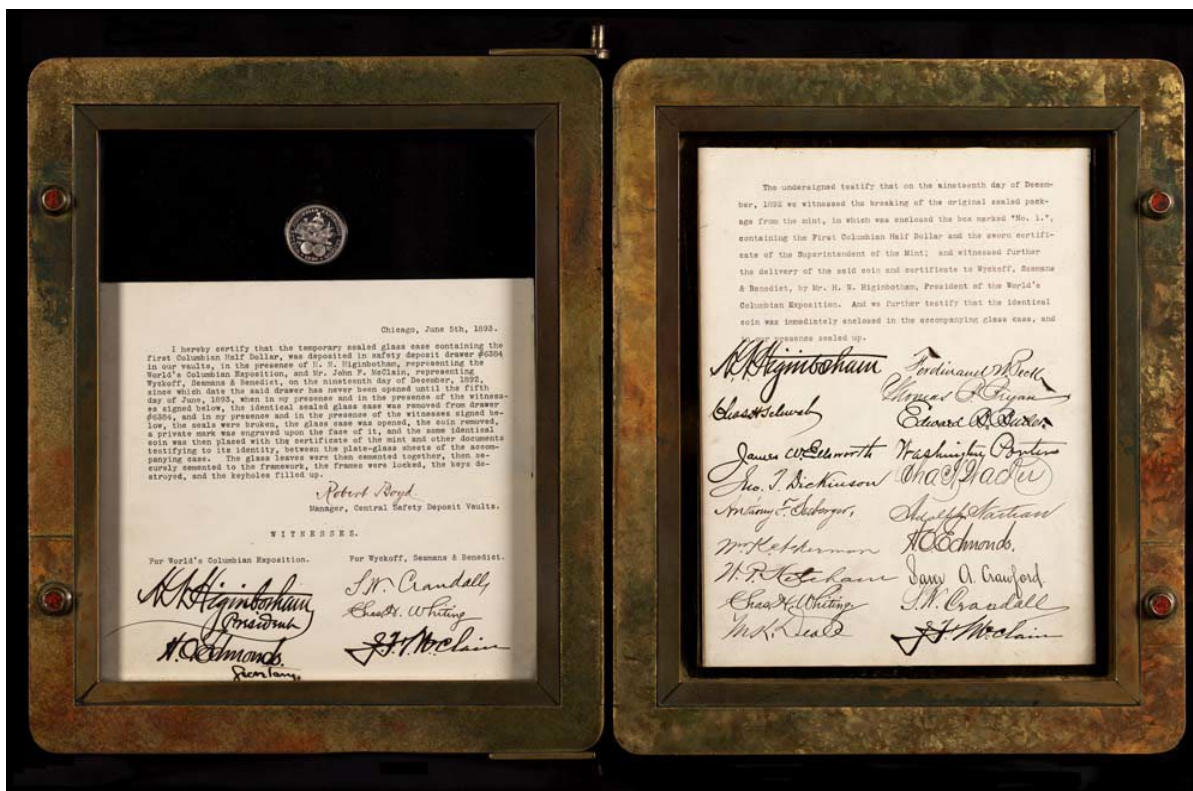 Chicago, June 5th, 1893.
I hereby certify that the temporary sealed glass case containing the
first Columbian Half Dollar, was deposited in safety deposit drawer #6384
in our vaults, in the presence of H. N. Higinbotham, representing the
World's Columbian Exposition, and Mr. John F. McClain, representing
Wyckoff, Seamans & Benedict, on the nineteenth day of December, 1892,
since which date the said drawer has never been opened until the fifth
day of June, 1893, when in my presence and in the presence of the witness-
es signed below, the identical sealed glass case was removed from drawer
#6384, and in my presence and in the presence of the witnesses signed be-
low, the seals were broken, the glass case was opened, the coin removed,
a private mark was engraved upon the face of it, and the same identical
coin was then placed with the certificate of the mint and other documents
testifying to its identity, between the plate-glass sheets of the accom-
panying case. The glass leaves were then cemented together, then se-
curely cemented to the framework, the frames were locked, the keys de-
stroyed, and the keyholes filled up.
Robert Boyd
Manager, Central Safety Deposit Vaults.
WITNESSES.
For World's Columbian Exposition. For Wyckoff, Seamans & Benedict.
H.N. Higinbotham S.W. Crandall
President Chas. H. Whiting
H.O. Edmonds. J.F. McClain
Secretary.
The undersigned testify that on the nineteenth day of Decem-
ber, 1892 we witnessed the breaking of the original sealed pack-
age from the mint, in which was enclosed the box marked "No. 1.",
containing the First Columbian Half Dollar and the sworn certifi-
cate of the Superintendent of the Mint; and witnessed further
the delivery of the said coin and certificate to Wyckoff, Seamans
& Benedict, by Mr. H. N. Higinbotham, President of the World's
Columbian Exposition. And we further testify that the identical
coin was immediately enclosed in the accompanying glass case, and
in our presence sealed up.
H.N. Higinbotham Ferdinand W. Peck
Thomas B. Bryan
Chas H Schwab Edward B. Butler
James W. Ellsworth Washington Porter
Geo. T. Dickinson
Anthony F. Seeberger, Adolph Nathan
Wm K Ackerman H.O. Edmonds.
W. P. Ketcham A. Crawford
Chas. H. Whiting S.W. Crandall
J.F. McClain